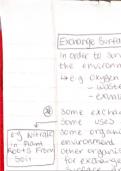 Exchange Surfa
In order to sur
the environm
↳ e.g. oxygen
- waste
- exam
Some excha
Some uses
Some organi
environment
other organis
for exchange
e.g. Nitrate
in Plant
Roots From
Soil